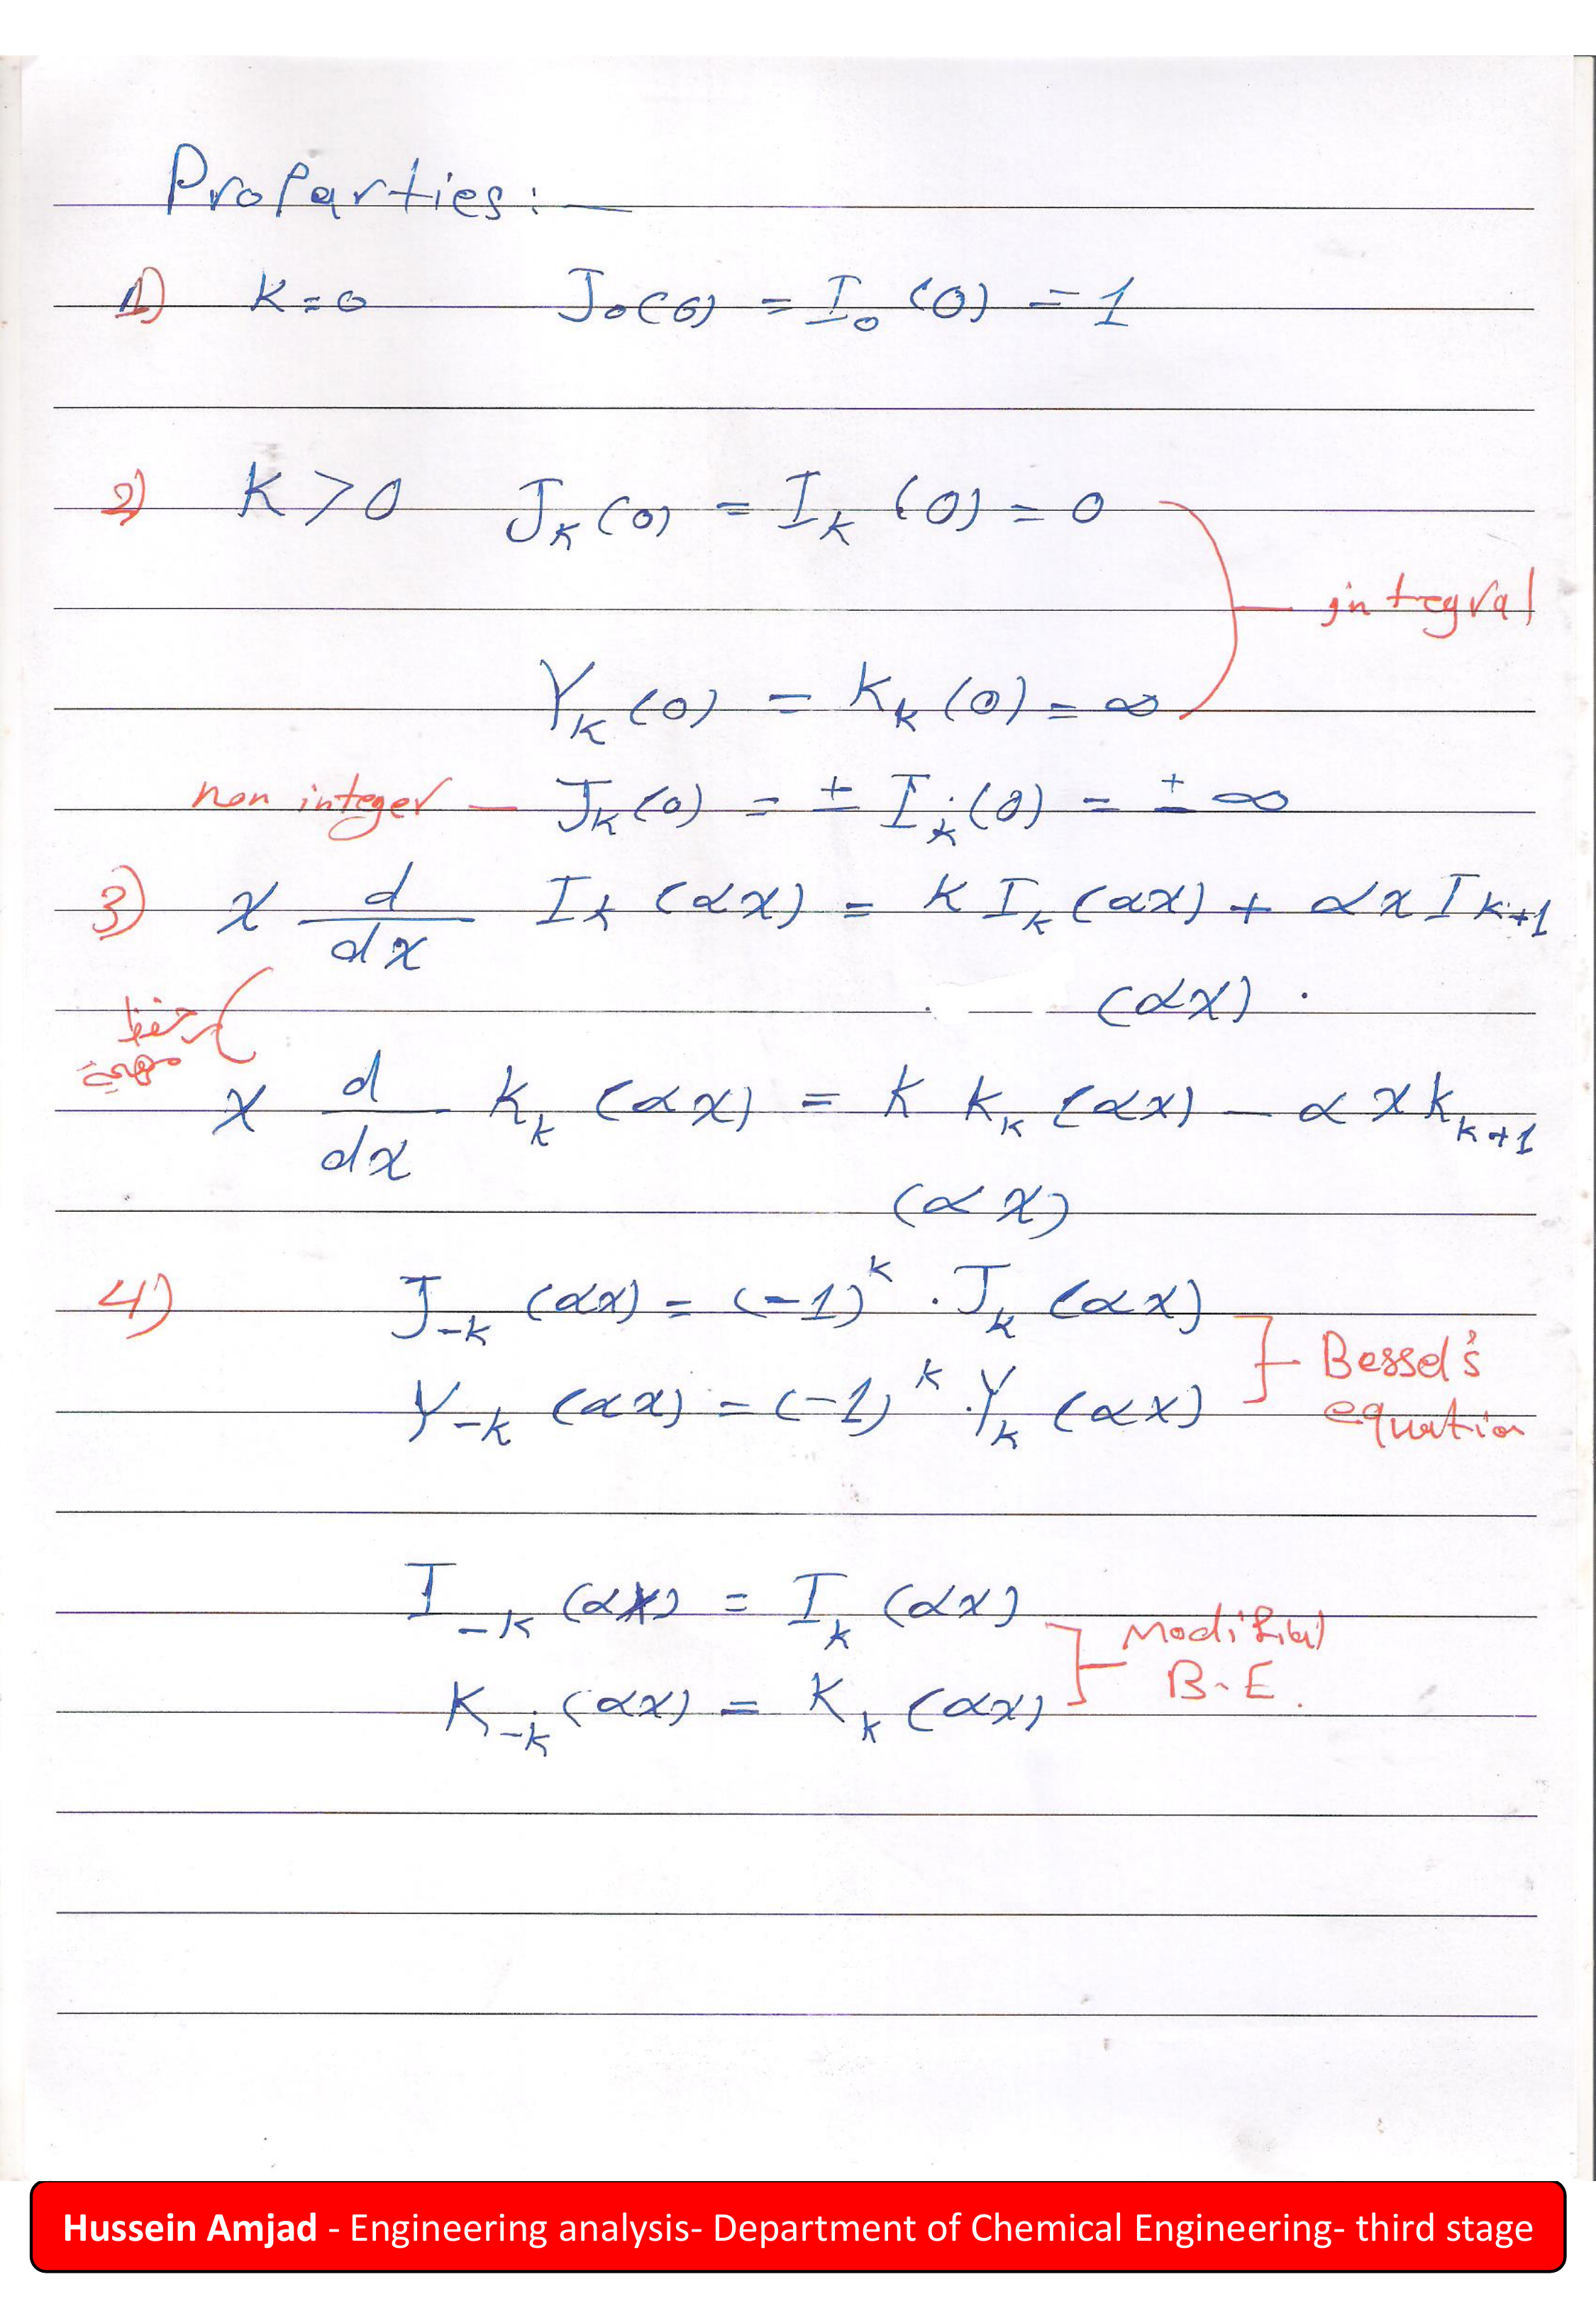 Proparties:-
1) K=0 J₀(0) = I₀(0) = 1
2) K>0 J_K(0) = I_K(0) = 0
integral
Y_K(0) = K_k(0) = ∞
non integer — J_k(0) = ± I_k(0) = ± ∞
3) x d/dx I_k(αx) = K I_k(αx) + αx I_{k+1}
(αx).
حفظ
x d/dx K_k(αx) = K K_k(αx) - αx K_{k+1}
(αx)
4) J_{-k}(αx) = (-1)^k . J_k(αx)
Y_{-k}(αx) = (-1)^k . Y_k(αx)
Bessel's
equation
I_{-k}(αx) = I_k(αx)
Modified
K_{-k}(αx) = K_k(αx)
B.E.
Hussein Amjad - Engineering analysis- Department of Chemical Engineering- third stage